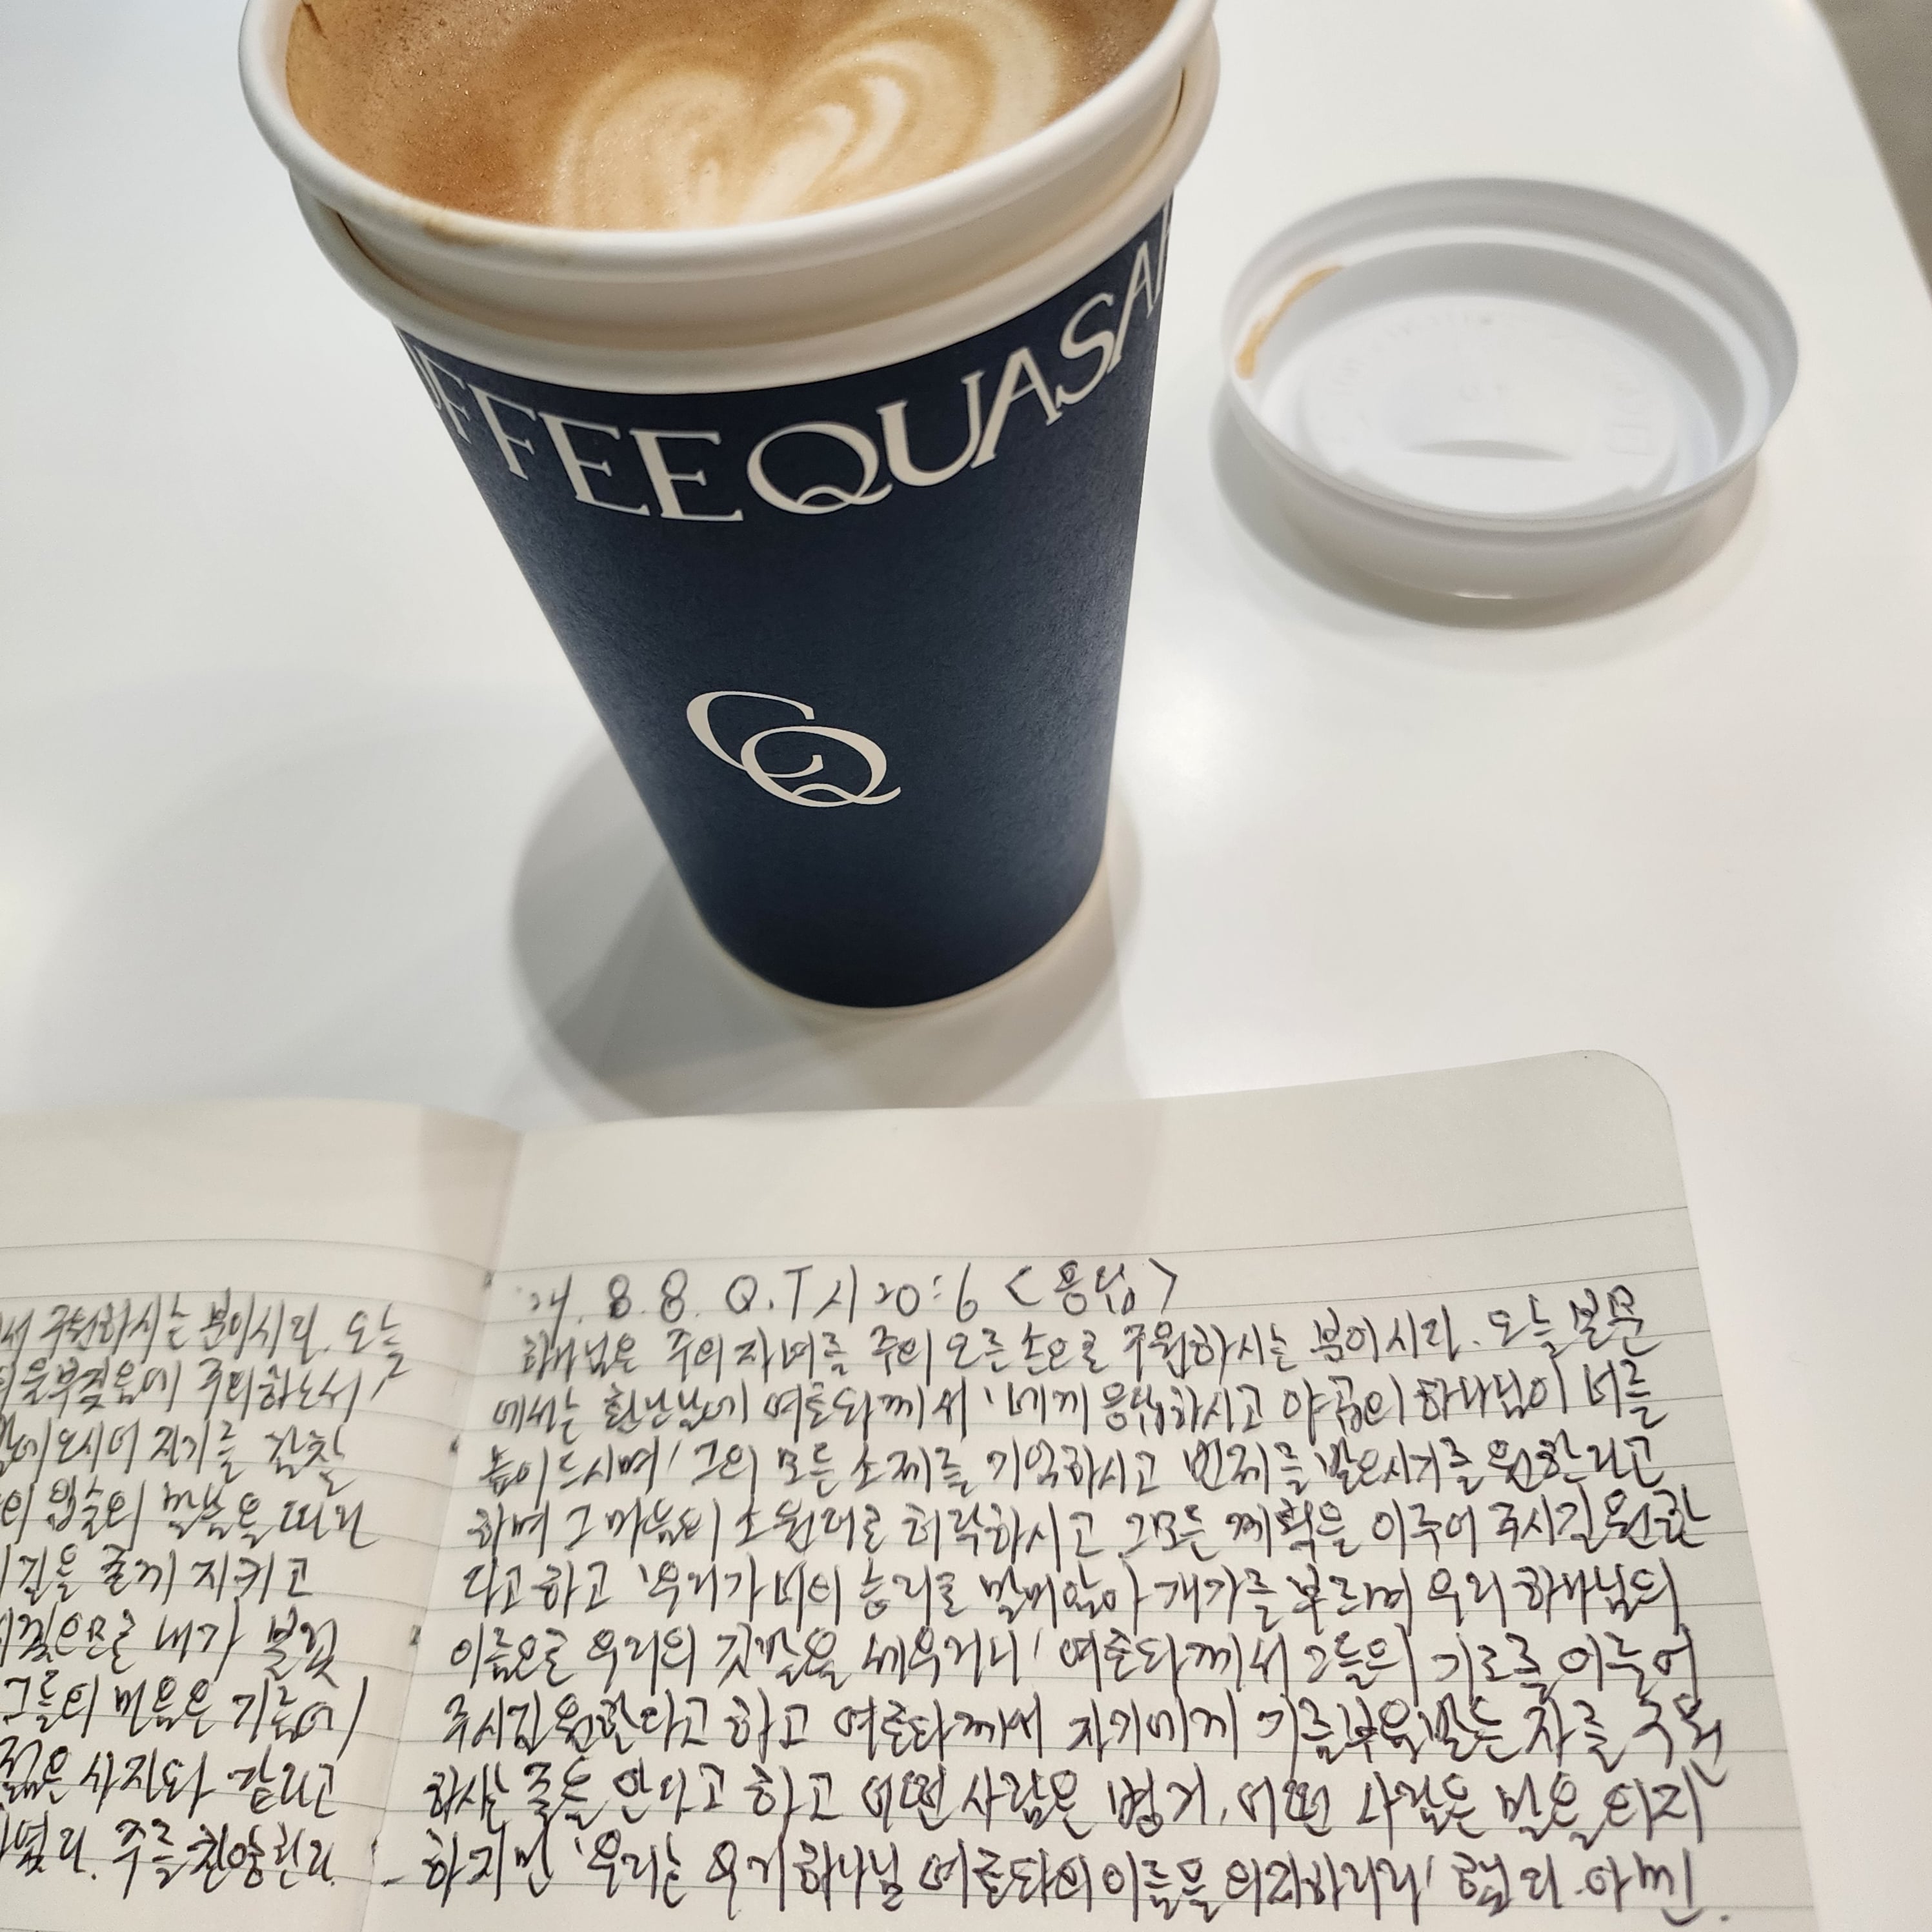 COFFEE QUASA
CQ
서 구원하시는 분이시라. 오늘
부짖음에 주의하소서
지키고
내가
그들의 기름에
젊은 사자와 같다고
주를 찬송한다.
'24. 8. 8. Q.T 시 20:6 <응답>
하나님은 주의 자녀를 주의 오른손으로 구원하시는 분이시라. 오늘 본문
에서는 환난날에 여호와께서 '네게 응답하시고 야곱의 하나님이 너를
높이 드시며' 그의 모든 소제를 기억하시고 번제를 받으시기를 원한다고
하며 그 마음의 소원대로 허락하시고 그 모든 계획을 이루어 주시길 원한
다고 하고 '우리가 너의 승리로 말미암아 개가를 부르며 우리 하나님의
이름으로 우리의 깃발을 세우리니' 여호와께서 그들의 기도를 이루어
주시길 원한다고 하고 여호와께서 자기에게 기름부음받는 자를 구원
하시는 줄을 안다고 하고 어떤 사람은 병거, 어떤 사람은 말을 의지
하지만 '우리는 우리 하나님 여호와의 이름을 의지하리라' 합니다. 아멘.